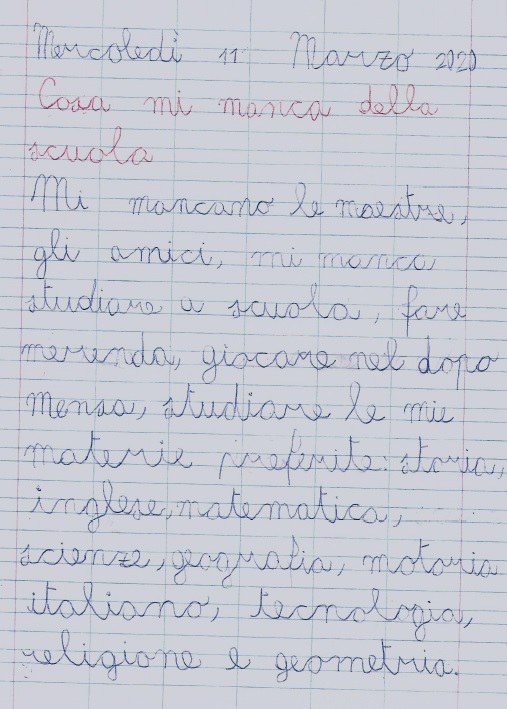 Mercoledì 11 Marzo 2020
Cosa mi manca della
scuola
Mi mancano le maestre,
gli amici, mi manca
studiare a scuola, fare
merenda, giocare nel dopo
mensa, studiare le mie
materie preferite: storia,
inglese, matematica,
scienze, geografia, motoria
italiano, tecnologia,
religione e geometria.